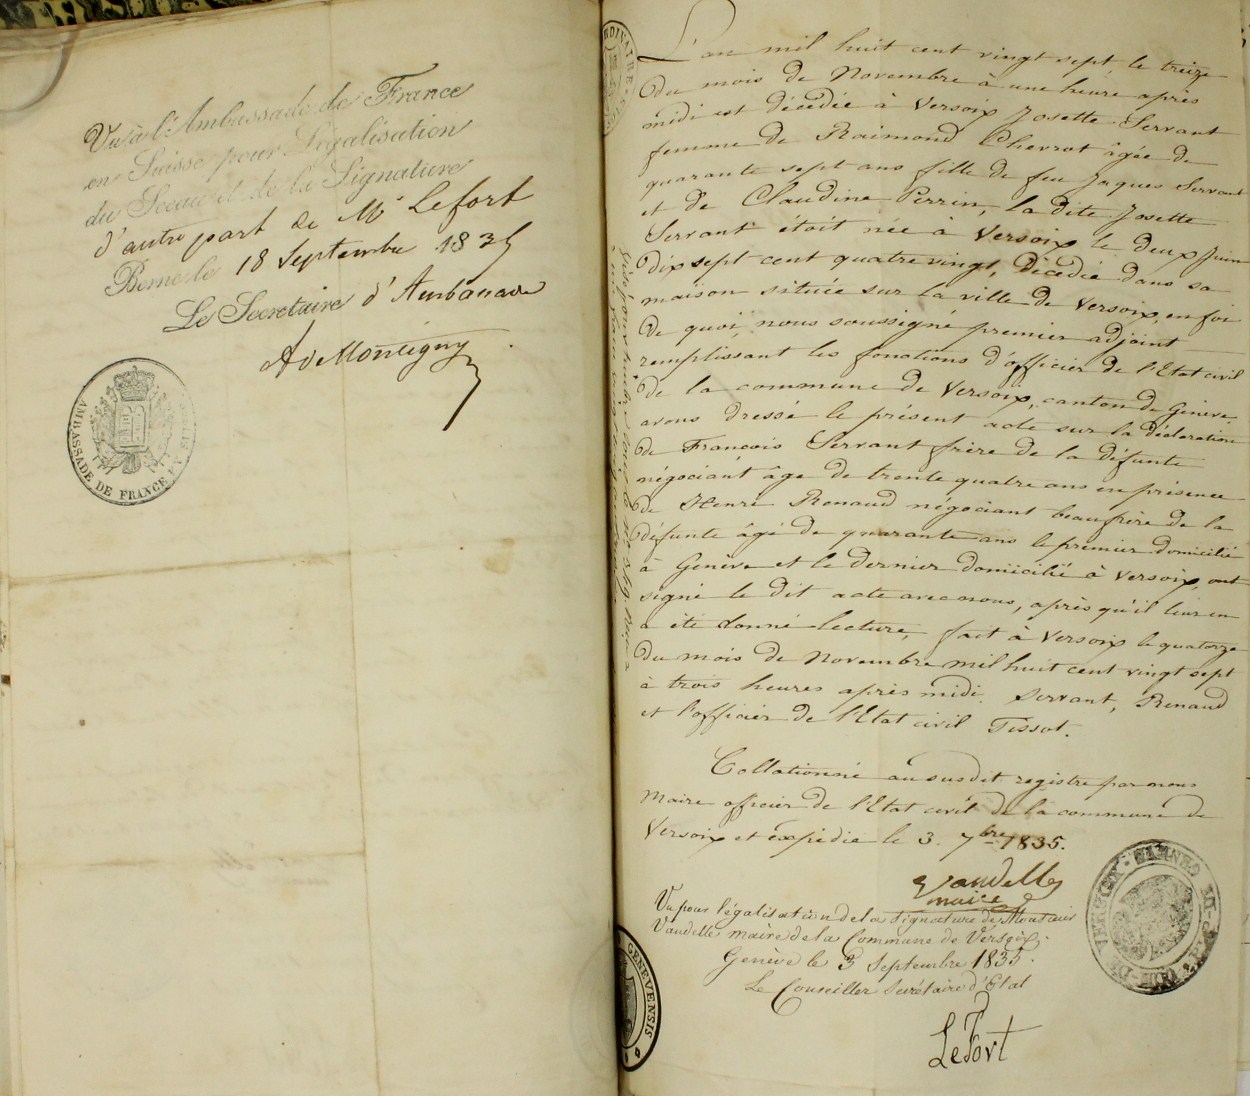 Vu à l'Ambassade de France
en Suisse pour Légalisation
du Sceau et de la Signature
d'autre part de Mr Lefort
Berne le 18 Septembre 1835
Le Secrétaire d'Ambassade
A de Montigny
AMBASSADE DE FRANCE EN SUISSE
L'an mil huit cent vingt sept, le treize
du mois de Novembre à une heure après
midi est décédée à Versoix Josette Servant
femme de Raimond Chevrot âgée de
quarante sept ans fille de feu Jaques Servant
et de Claudine Perrin, la dite Josette
Servant était née à Versoix le deux Juin
dix sept cent quatre vingt, décédée dans sa
maison située sur la ville de Versoix, en foi
de quoi, nous soussigné premier adjoint
remplissant les fonctions d'officier de l'Etat civil
de la commune de Versoix, canton de Genève
avons dressé le présent acte sur la déclaration
de François Servant frère de la défunte
négociant âgé de trente quatre ans en présence
de Henri Renaud négociant beaufrère de la
défunte âgé de quarante ans le premier domicilié
à Genève et le dernier domicilié à Versoix, ont
signé le dit acte avec nous, après qu'il leur en
a été donné lecture, fait à Versoix le quatorze
du mois de Novembre mil huit cent vingt sept
à trois heures après midi. Servant, Renaud
et l'officier de l'Etat civil Tissot.
Collationné au susdit registre par nous
Maire officier de l'Etat civil de la commune de
Versoix et expédié le 3. 7bre 1835.
Vaudelle
maire
Vu pour légalisation de la signature de Monsieur
Vaudelle maire de la Commune de Versoix.
Genève le 3 Septembre 1835.
Le Conseiller Secrétaire d'Etat
LeFort
GENEVENSIS